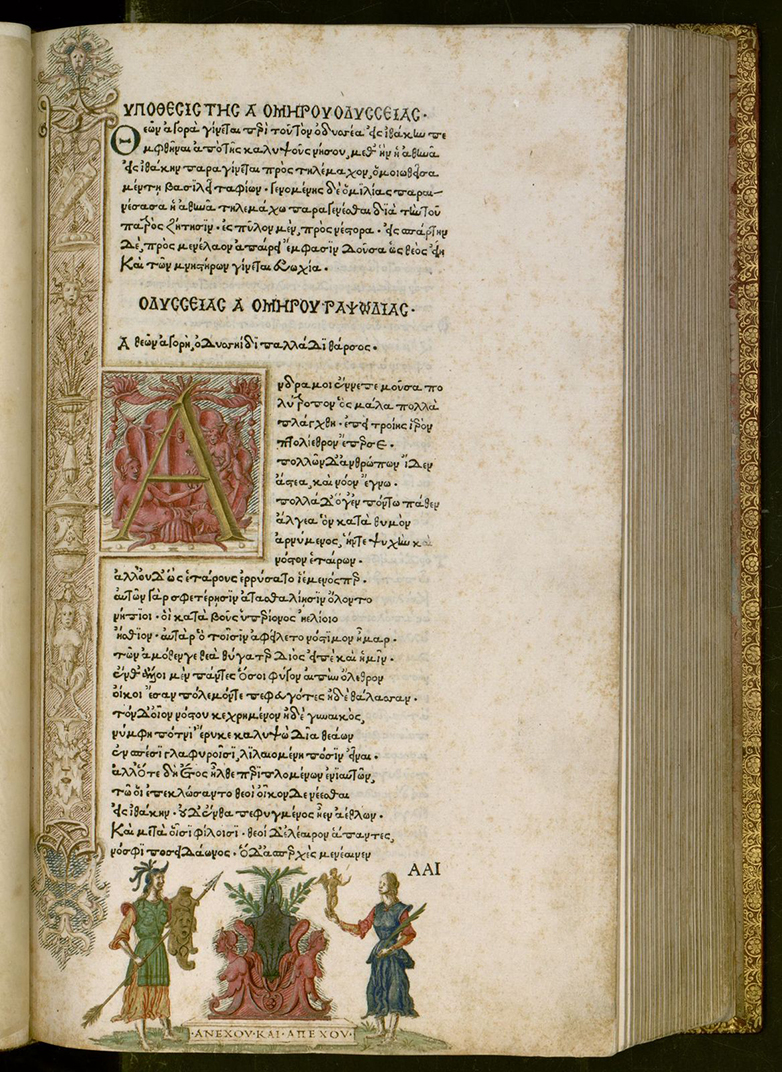 ΥΠΟΘΕϹΙϹ ΤΗϹ Α ΟΜΗΡΟΥ ΟΔΥϹϹΕΙΑϹ·
Θεῶν ἀγορὰ γίνεται περὶ τοῦ τὸν ὀδυσσέα εἰς ἰθάκην πε
μφθῆναι ἀπὸ τῆς καλυψοῦς νήσου, μεθ' ἣν ἡ ἀθηνᾶ
εἰς ἰθάκην παραγίνεται πρὸς τηλέμαχον, ὁμοιωθεῖσα
μέντῃ βασιλεῖ ταφίων· γενομένης δὲ ὁμιλίας παραι-
νέσασα ἡ ἀθηνᾶ τηλεμάχω παραγενέσθαι διὰ τὴν τοῦ
πατρὸς ζήτησιν· ἐς πύλον μὲν, πρὸς νέστορα· εἰς σπάρτην
δὲ, πρὸς μενέλαον ἀπαίρει ἔμφασιν δοῦσα ὡς θεὸς εἴη
Καὶ τῶν μνηστήρων γίνεται εὐωχία·
ΟΔΥϹϹΕΙΑϹ Α ΟΜΗΡΟΥ ΡΑΨΩΔΙΑϹ·
Α θεῶν ἀγορὴ, ὀδυσηίδι παλλάδι θάρσος·
Α
νδρα μοι ἔννεπε μοῦσα πο
λύτροπον ὃς μάλα πολλὰ
πλάγχθη· ἐπεὶ τροίης ἱερὸν
πτολίεθρον ἔπερσε·
πολλῶν δ' ἀνθρώπων ἴδεν
ἄστεα, καὶ νόον ἔγνω·
πολλὰ δ' ὅγ' ἐν πόντω πάθεν
ἄλγεα ὃν κατὰ θυμὸν
ἀρνύμενος, ἥν τε ψυχὴν καὶ
νόστον ἑταίρων·
ἀλλ' οὐδ' ὣς ἑτάρους ἐρρύσατο ἱέμενός περ·
αὐτῶν γὰρ σφετέρησιν ἀτασθαλίησιν ὄλοντο
νήπιοι· οἳ κατὰ βοῦς ὑπερίονος ἠελίοιο
ἤσθιον· αὐτὰρ ὁ τοῖσιν ἀφείλετο νόστιμον ἦμαρ·
τῶν ἁμόθεν γε θεὰ θύγατερ Διὸς εἰπὲ καὶ ἡμῖν·
ἔνθ' ἄλλοι μὲν πάντες ὅσοι φύγον αἰπὺν ὄλεθρον
οἴκοι ἔσαν πόλεμόν τε πεφευγότες ἠδὲ θάλασσαν·
τὸν δ' οἶον νόστου κεχρημένον ἠδὲ γυναικὸς,
νύμφη πότνι' ἔρυκε καλυψὼ δῖα θεάων
ἐν σπέσσι γλαφυροῖσι, λιλαιομένη πόσιν εἶναι·
ἀλλ' ὅτε δὴ ἔτος ἦλθε περιπλομένων ἐνιαυτῶν,
τῶ οἱ ἐπεκλώσαντο θεοὶ οἶκον δε νέεσθαι
εἰς ἰθάκην· οὐδ' ἔνθα πεφυγμένος ἦεν ἀέθλων·
Καὶ μετὰ οἷσι φίλοισι· θεοὶ δ' ἐλέαιρον ἅπαντες,
νόσφι ποσειδάωνος· ὁ δ' ἀσπερχὲς μενέαινεν
ΑΑΙ
·ΑΝΕΧΟΥ·ΚΑΙ·ΑΠΕΧΟΥ·